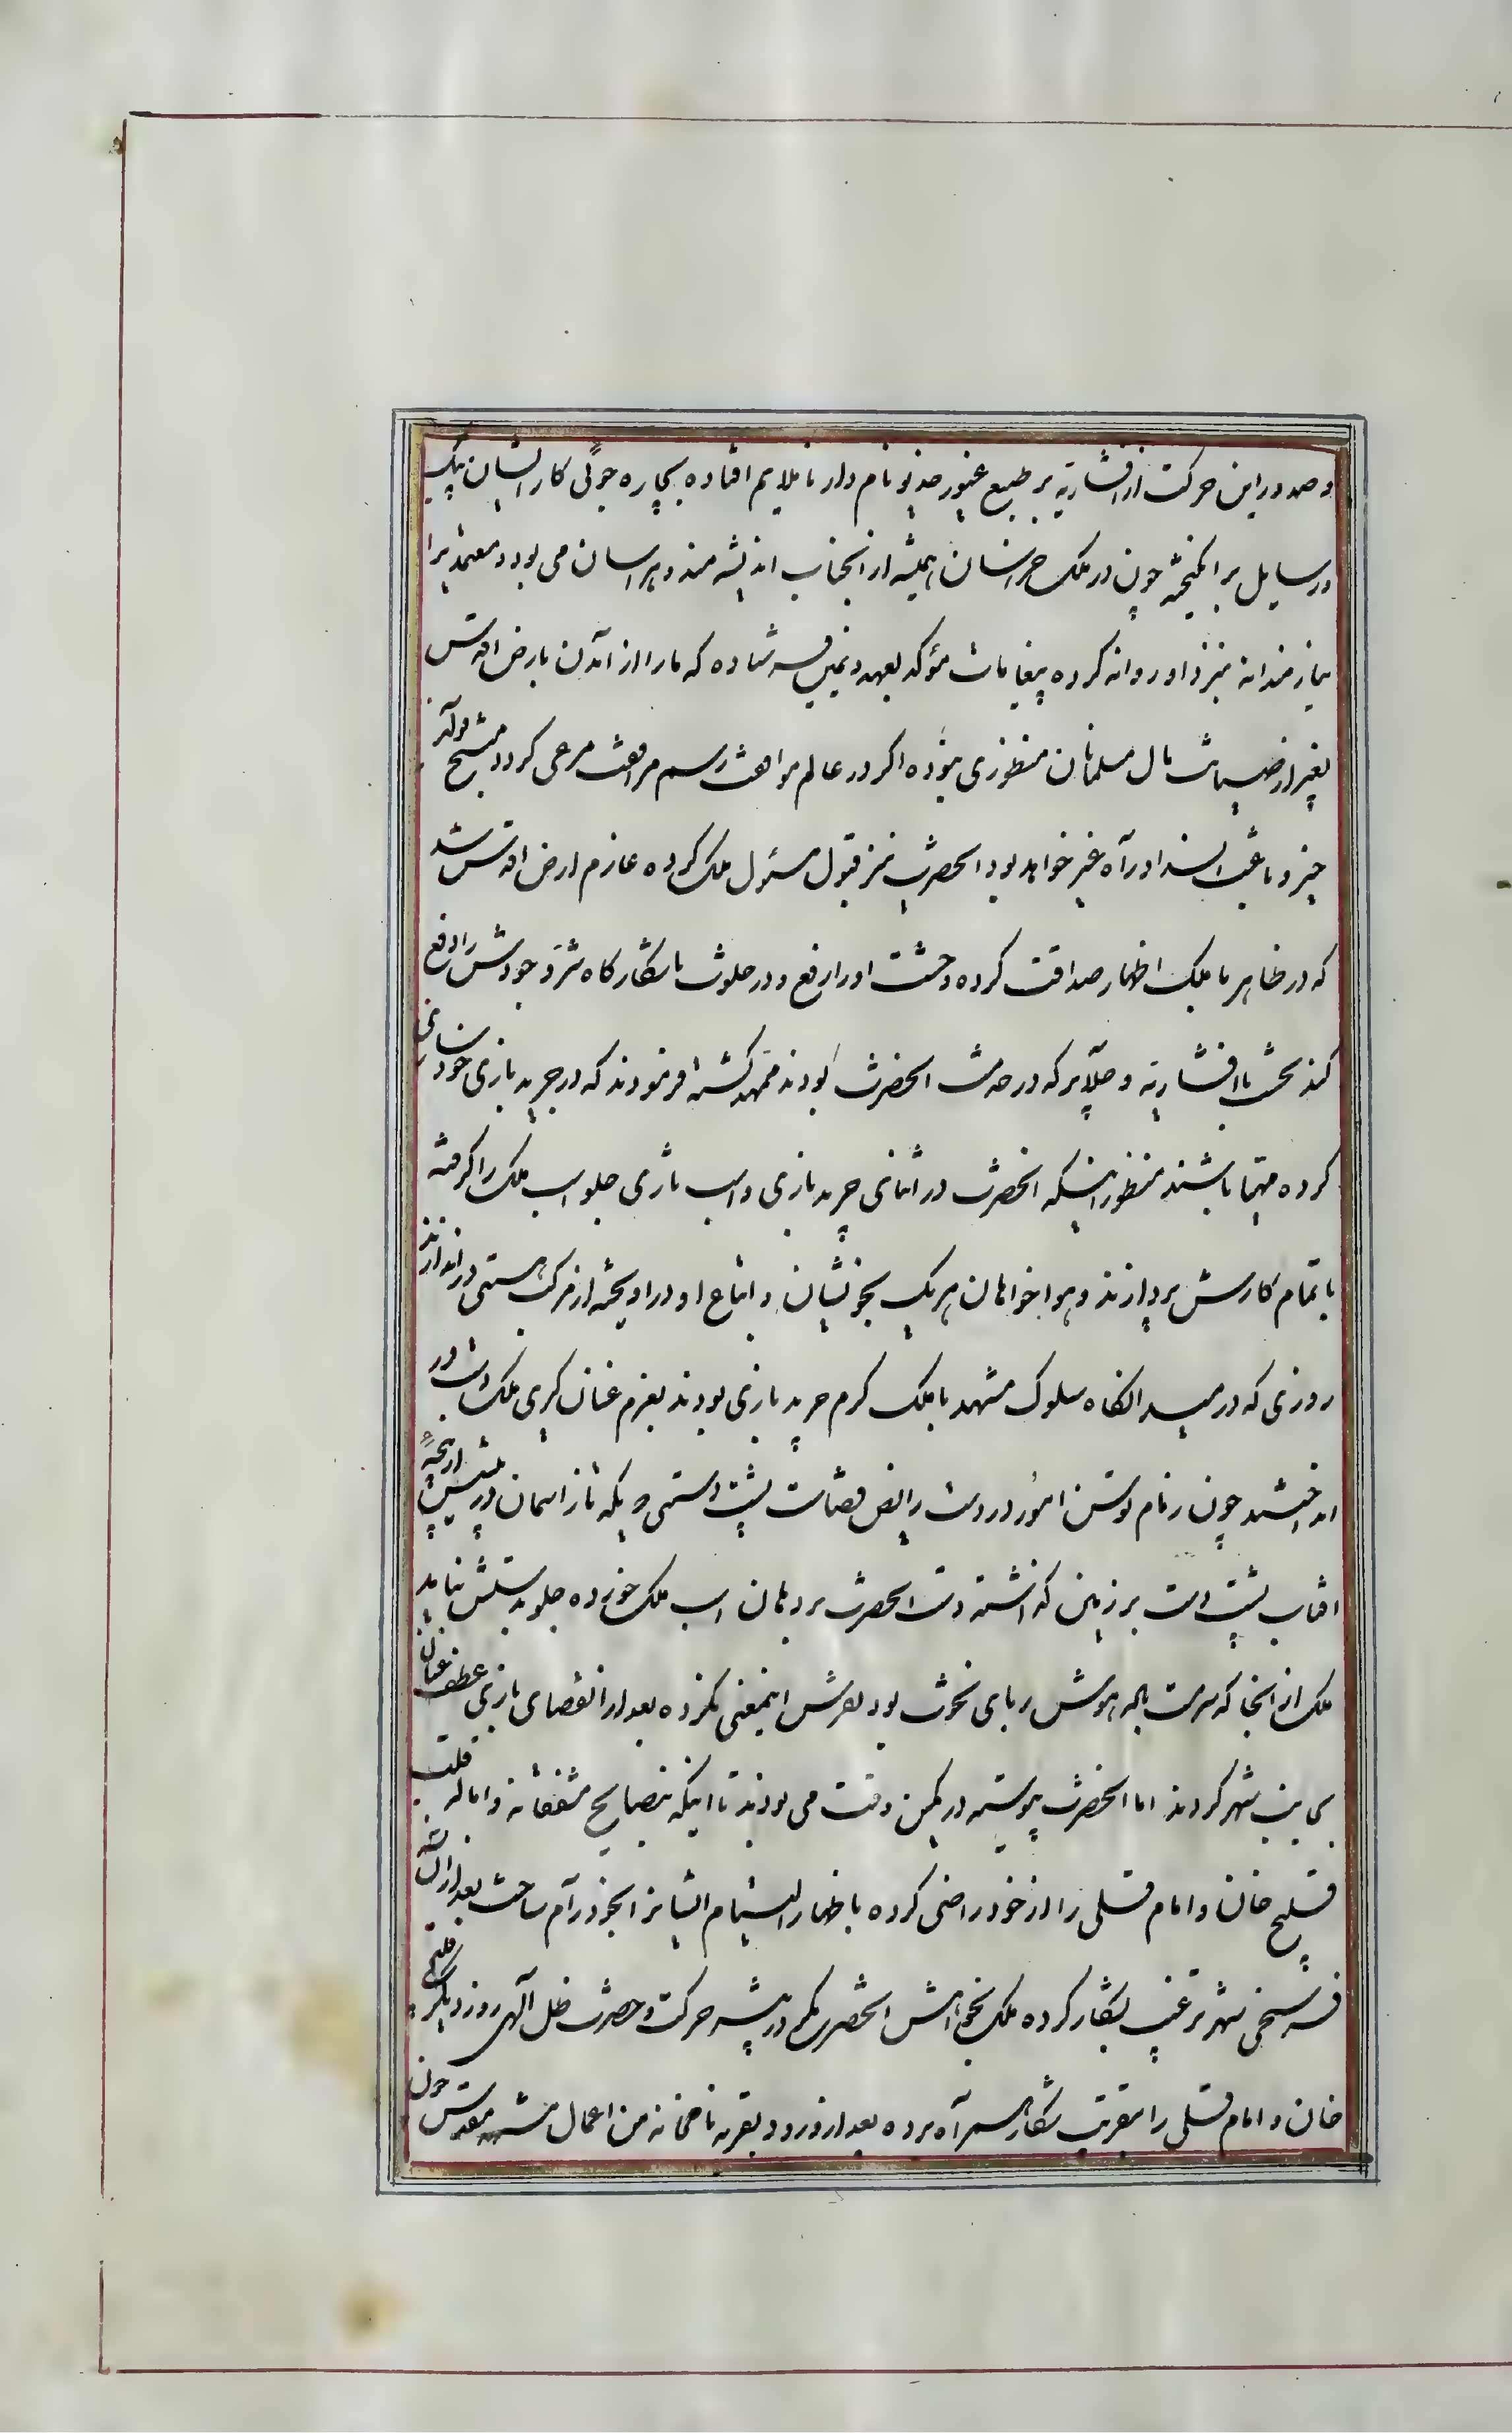 و صدور این حرکت از افشاریه بر طبع غیور خدیو نامدار ناملایم افتاده بچاره جوئی کار ایشان پیک
و رسایل برانگیخته چون در ملک خراسان همیشه از آنجناب اندیشه مند و هراسان می بود و معتمدیرا
نیازمندانه بنزد او روانه کرده پیغامات مؤکد بعهد و یمین فرستاده که ما را از آمدن بارض اقدس
بغیر از صیانت مال مسلمانان منظوری نبوده اگر در عالم موافقت رسم مرافقت مرعی کردد منتج فوائد
خیر و باعث انسداد راه غیر خواهد بود آنحضرت نیز قبول مسئول ملک کرده عازم ارض اقدس شد
که در ظاهر با ملک اظهار صداقت کرده وحشت او را رفع و در خلوت با شکارکاه شر وجودش را دفع
کند نخست با افشاریه و جلایر که در خدمت آنحضرت بودند ممهد کشته فرمودند که در جرید بازی خود نمائی
کرده مهیا باشند منظور اینکه آنحضرت در اثنای جرید بازی و اسب تازی جلو اسب ملک را کرفته
باتمام کارش پردازند و هواخواهان هر یک بخویشان و اتباع او در آویخته از مرکب هستی در اندازند
روزی که در میدانگاه سلوک مشهد با ملک کرم جرید بازی بودند بعزم عنان کیری ملک دست در
انداختند چون زمام توسن امور در دست رایض قضاست پشت دستی و یکه تاز آسمان در پیش از پنجهٔ
آفتاب پشت دست بر زمین گذاشته دست آنحضرت بر دهان اسب ملک خورده جلو بدستش نیامد
ملک از آنجا که سرمست باده هوش ربای نخوت بود تفرس اینمعنی نکرده بعد از انقضای بازی عطف عنان
بجانب شهر کردند اما آنحضرت پیوسته در کمین وقت می بودند تا اینکه بنصایح مشفقانه و اماله قلب
قلیج خان و امام قلی را از خود راضی کرده باظهار التیام ایشانرا بخود رام ساخت بعد از آن
فرسخی شهر ترغیب بشکار کرده ملک بخواهش آنحضرت حرکت و حضرت ظل الهی روز دیگر قلیج
خان و امام قلی را بتقریب شکار همراه برده بعد از ورود بقریه من اعمال مشهد مقدس چون